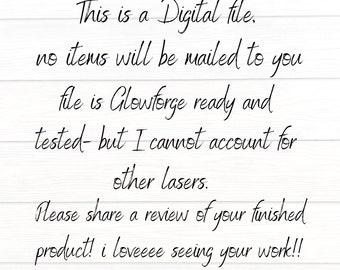 This is a Digital file,
no items will be mailed to you
file is Glowforge ready and
tested- but I cannot account for
other lasers.
Please share a review of your finished
product! i loveeee seeing your work!!